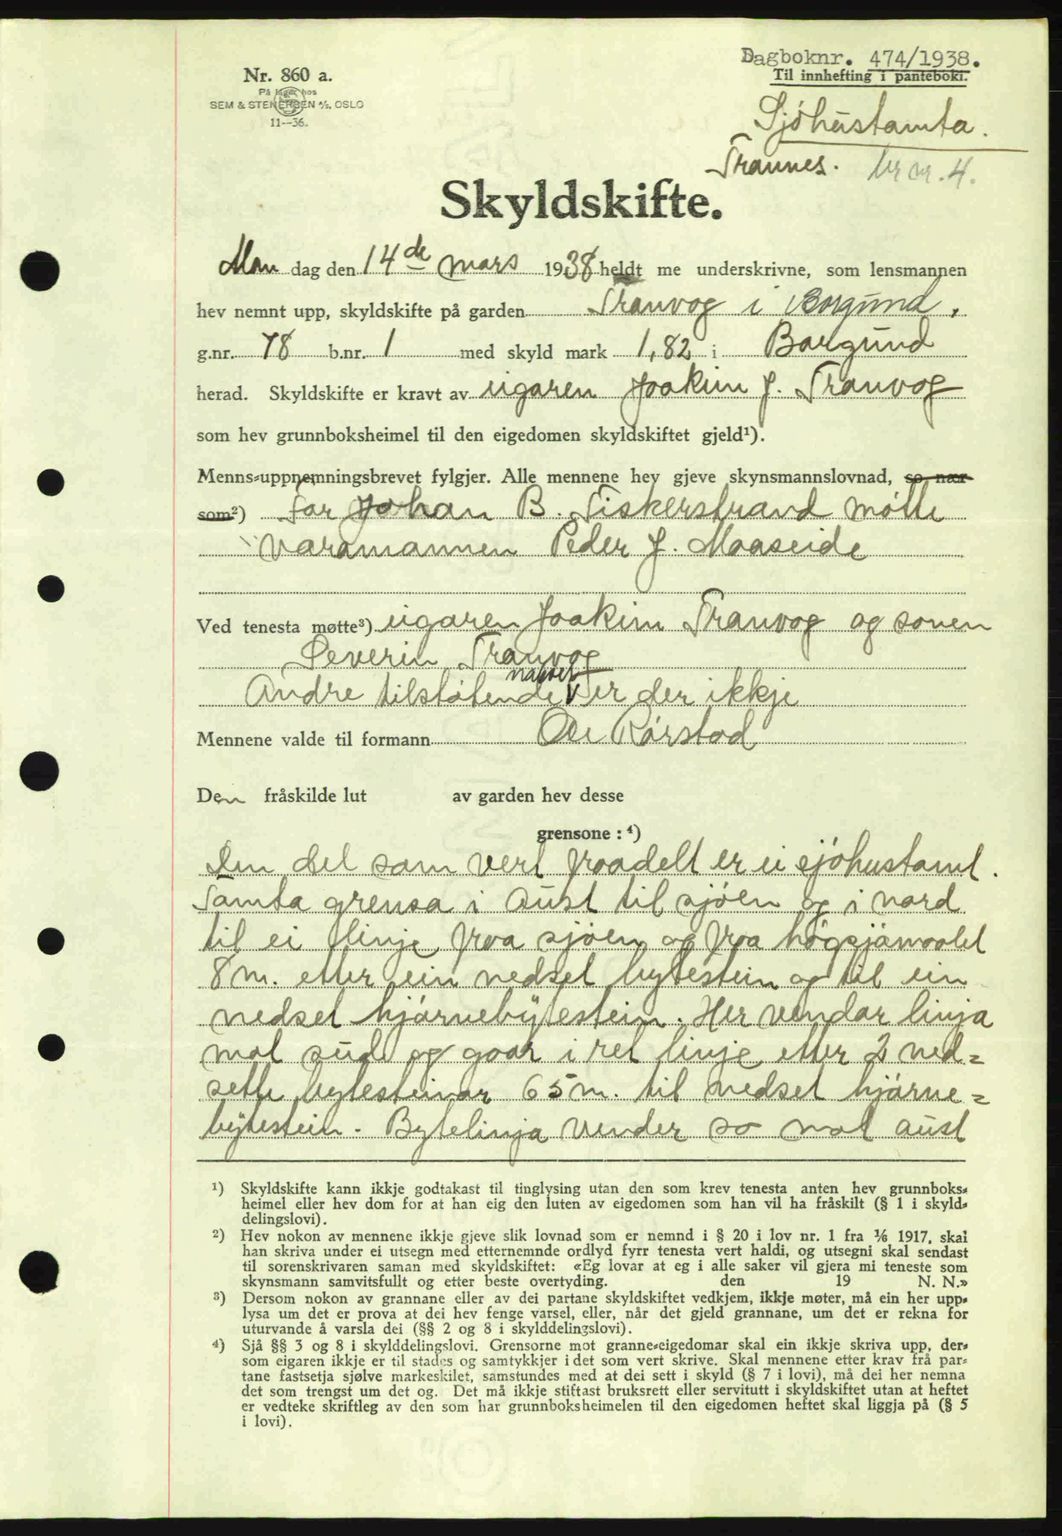 Dagboknr. 474/1938.
Til innhefting i pantebok.
Nr. 860 a.
På lager hos
SEM & STENERSEN A/S, OSLO
11--36.
Sjøhustamta.
Trannes. br nr. 4.
Skyldskifte.
Mandag den 14de mars 1938 heldt me underskrivne, som lensmannen
hev nemnt upp, skyldskifte på garden Tranvog i Borgund,
g.nr. 78 b.nr. 1 med skyld mark 1,82 i Borgund
herad. Skyldskifte er kravt av eigaren Joakim J. Tranvog
som hev grunnboksheimel til den eigedomen skyldskiftet gjeld¹).
Menns-uppnemningsbrevet fylgjer. Alle mennene hev gjeve skynsmannslovnad, so nær
som²) For Johan B. Fiskerstrand møtte
varamannen Peder J. Maaseide
Ved tenesta møtte³) eigaren Joakim Tranvog og sonen
Severin Tranvog
Andre tilstøtende naboer er der ikkje
Mennene valde til formann Ole Rørstad
Den fråskilde lut av garden hev desse
grensone : ⁴)
Den del som vert fraadelt er ei sjøhustamt.
Tamta grensa i aust til sjøen og i nord
til ei linje fraa sjøen og fraa høgsjømaalet
8 m. etter ein nedset bytestein og til ein
nedset hjørnebytestein. Her vendar linja
mot sud og goar i ret linje etter 2 ned=
sette bytesteinar 65 m. til nedset hjørne=
bytestein. Bytelinja vender so mot aust
¹) Skyldskifte kann ikkje godtakast til tinglysing utan den som krev tenesta anten hev grunnboks-
heimel eller hev dom for at han eig den luten av eigedomen som han vil ha fråskilt (§ 1 i skyld-
delingslovi).
²) Hev nokon av mennene ikkje gjeve slik lovnad som er nemnd i § 20 i lov nr. 1 fra 1/6 1917, skal
han skriva under ei utsegn med etternemnde ordlyd fyrr tenesta vert haldi, og utsegni skal sendast
til sorenskrivaren saman med skyldskiftet: «Eg lovar at eg i alle saker vil gjera mi teneste som
skynsmann samvitsfullt og etter beste overtyding. den 19 N. N.»
³) Dersom nokon av grannane eller av dei partane skyldskiftet vedkjem, ikkje møter, må ein her upp-
lysa um det er prova at dei hev fenge varsel, eller, når det gjeld grannane, um det er rekna for
uturvande å varsla dei (§§ 2 og 8 i skylddelingslovi).
⁴) Sjå §§ 3 og 8 i skylddelingslovi. Grensorne mot granne-eigedomar skal ein ikkje skriva upp, der-
som eigaren ikkje er til stades og samtykkjer i det som vert skrive. Skal mennene etter krav frå par-
tane fastsetja sjølve markeskilet, samstundes med at dei sett i skyld (§ 7 i lovi), må dei her nemna
det som trengst um det og. Det må ikkje stiftast bruksrett eller servitutt i skyldskiftet utan at heftet
er vedteke skriftleg av den som har grunnboksheimelen til den eigedomen heftet skal liggja på (§ 5
i lovi).